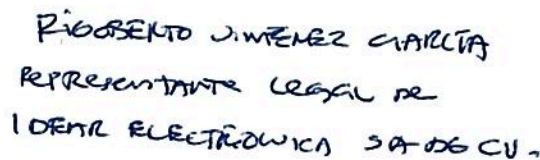 RIGOBERTO JIMENEZ GARCIA
REPRESENTANTE LEGAL DE
IDEAR ELECTRÓNICA SA DE CV.